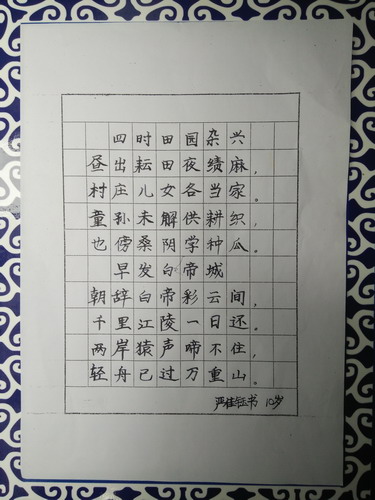 四时田园杂兴
昼出耘田夜绩麻，
村庄儿女各当家。
童孙未解供耕织，
也傍桑阴学种瓜。
早发白帝城
朝辞白帝彩云间，
千里江陵一日还。
两岸猿声啼不住，
轻舟已过万重山。
严桂钰书 10岁